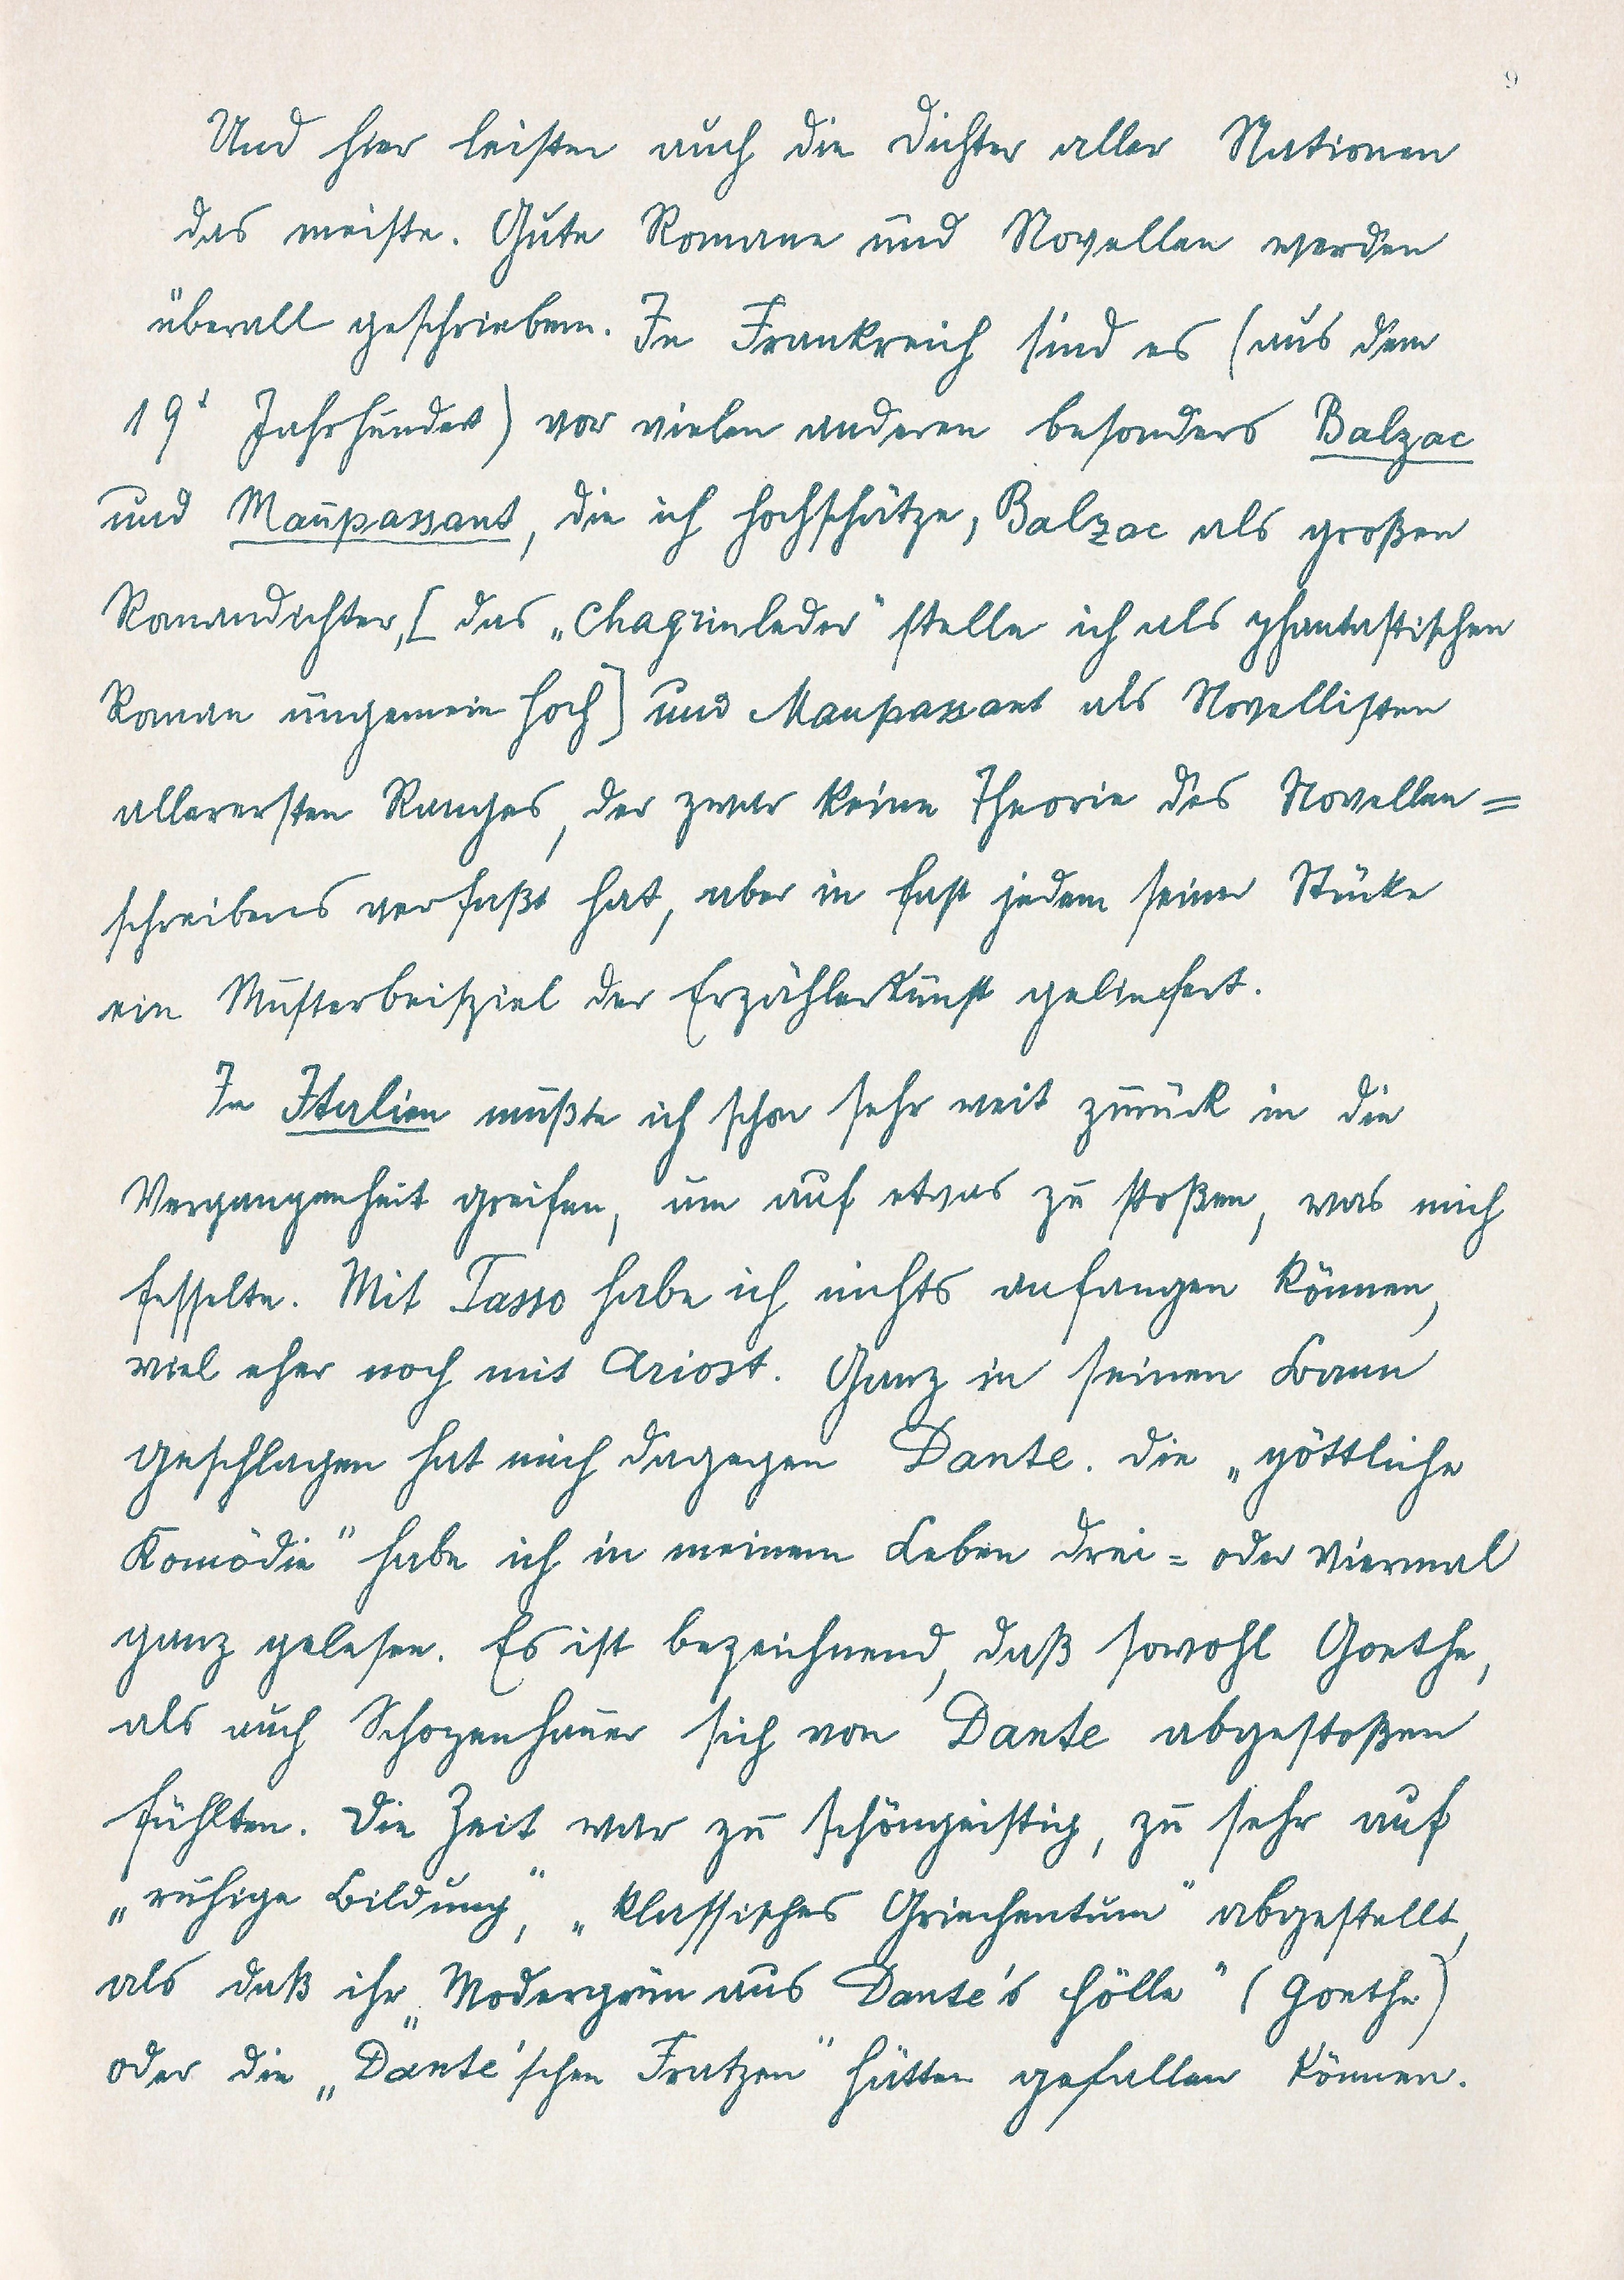 9
Und hier leisten auch die Dichter aller Nationen
das meiste. Gute Romane und Novellen werden
überall geschrieben. In Frankreich sind es (aus dem
19t Jahrhundert) vor vielen anderen besonders Balzac
und Maupassant, die ich hochschätze, Balzac als großen
Romandichter, [das „Chagrinleder" stelle ich als phantastischen
Roman ungemein hoch] und Maupassant als Novellisten
allerersten Ranges, der zwar keine Theorie des Novellen=
schreibens verfaßt hat, aber in fast jedem seiner Stücke
ein Musterbeispiel der Erzählerkunst geliefert.
In Italien müßte ich schon sehr weit zurück in die
Vergangenheit greifen, um auf etwas zu stoßen, was mich
fesselte. Mit Tasso habe ich nichts anfangen können,
viel eher noch mit Ariost. Ganz in seinen Bann
geschlagen hat mich dagegen Dante. Die „göttliche
Komödie" habe ich in meinem Leben drei= oder viermal
ganz gelesen. Es ist bezeichnend, daß sowohl Goethe,
als auch Schopenhauer sich von Dante abgestoßen
fühlten. Die Zeit war zu schöngeistig, zu sehr auf
„ruhige Bildung", „klassisches Griechentum" abgestellt,
als daß ihr „Modergrün aus Dante's Hölle" (Goethe)
oder die „Dante'schen Fratzen" hätten gefallen können.